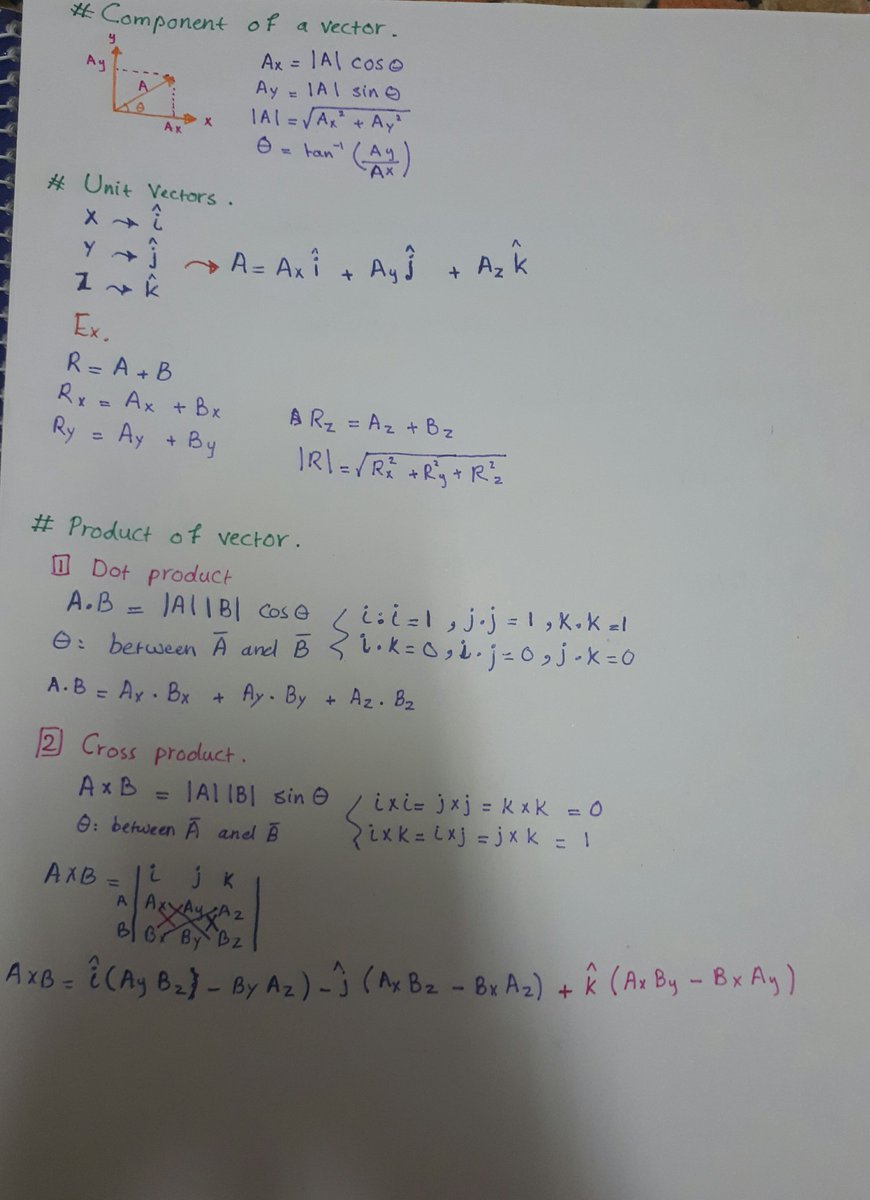 # Component of a vector.
y
Ay
A
θ
Ax
x
Ax = |A| cosθ
Ay = |A| sinθ
|A| = √Ax² + Ay²
θ = tan⁻¹ (Ay/Ax)
# Unit Vectors.
X → î
Y → ĵ
Z → k̂
→ A = Ax î + Ay ĵ + Az k̂
Ex.
R = A + B
Rx = Ax + Bx
Ry = Ay + By
Rz = Az + Bz
|R| = √Rx² + Ry² + Rz²
# Product of vector.
1 Dot product
A.B = |A| |B| cosθ
θ: between A̅ and B̅
{ i.i = 1 , j.j = 1 , k.k = 1
i.k = 0 , i.j = 0 , j.k = 0
A.B = Ax . Bx + Ay . By + Az . Bz
2 Cross product.
A x B = |A| |B| sinθ
θ: between A̅ and B̅
{ i x i = j x j = k x k = 0
i x k = i x j = j x k = 1
A x B = | i j k |
A | Ax Ay Az |
B | Bx By Bz |
A x B = î (Ay Bz} - By Az) - ĵ (Ax Bz - Bx Az) + k̂ (Ax By - Bx Ay)